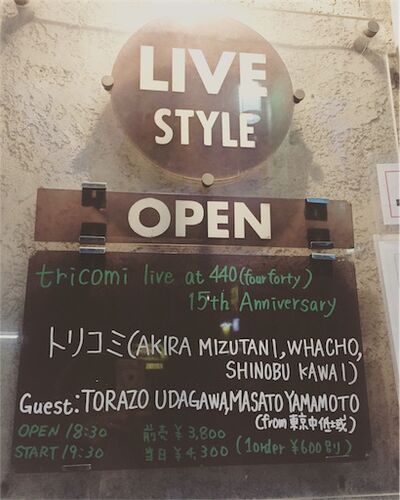 LIVE
STYLE
OPEN
tricomi live at 440(four forty)
15th Anniversary
トリコミ(AKIRA MIZUTANI,WHACHO,
SHINOBU KAWAI)
Guest:TORAZO UDAGAWA,MASATO YAMAMOTO
(from 東京中低域)
OPEN 18:30 前売 ¥3,800
START 19:30 当日 ¥4,300 (1order ¥600別)